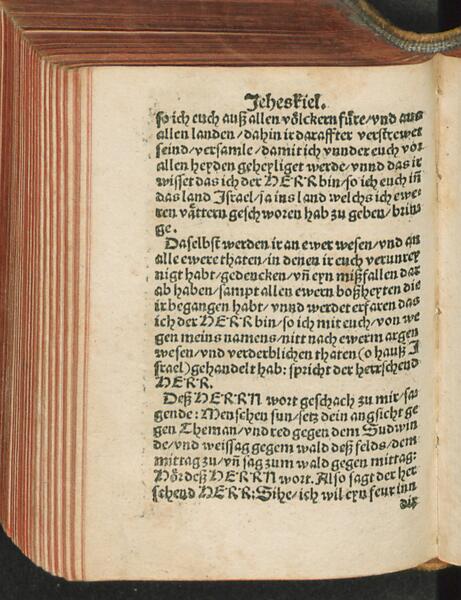 Jeheskiel.
so ich euch auß allen völckern füre/vnd aus
allen landen/dahin ir daraffter verstrewet
seind/versamle/damit ich vnnder euch vor
allen heyden geheyliget werde/vnnd das ir
wisset das ich der HERR bin/so ich euch iñ
das land Israel/ja ins land welchs ich ewe-
ren vättern geschworen hab zu geben/brin
ge.
Daselbst werden ir an ewer wesen/vnd an
alle ewere thaten/in denen ir euch verunrey
nigt habt/gedencken/vñ eyn mißfallen dar
ab haben/sampt allen ewern boßheyten die
ir begangen habt/vnnd werdet erfaren das
ich der HERR bin/so ich mit euch/von we
gen meins namens/nitt nach ewerm argen
wesen/vnd verderblichen thaten (o hauß J
srael) gehandelt hab: spricht der herrschend
HERR.
Deß HERRN wort geschach zu mir/sa-
gende: Menschen sun/setz dein angsicht ge
gen Theman/vnd red gegen dem Sudwin
de/vnd weissag gegem wald deß felds/dem
mittag zu/vñ sag zum wald gegen mittag:
Hör deß HERRN wort. Also sagt der her
schend HERR: Sihe/ich wil eyn feur inn
dir